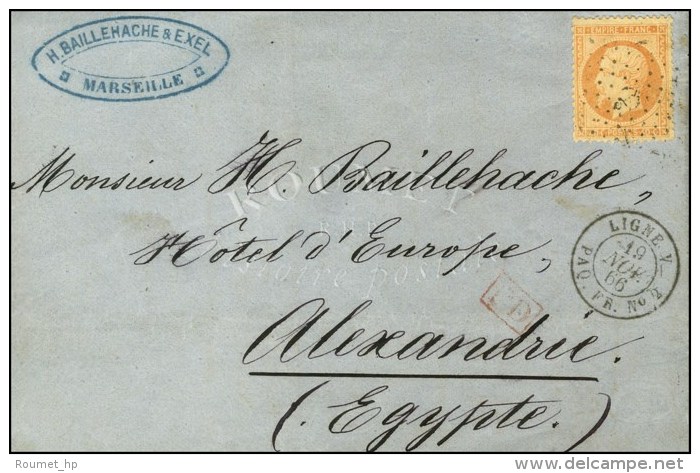 H. BAILLEHACHE & EXEL
MARSEILLE
EMPIRE FRANC
Monsieur H. Baillehache,
Hôtel d'Europe,
Alexandrie.
(Egypte.)
LIGNE V
19
NOV.
66
PAQ. FR. No 2
PD
ROUMET
histoire postale
Roumet_hp